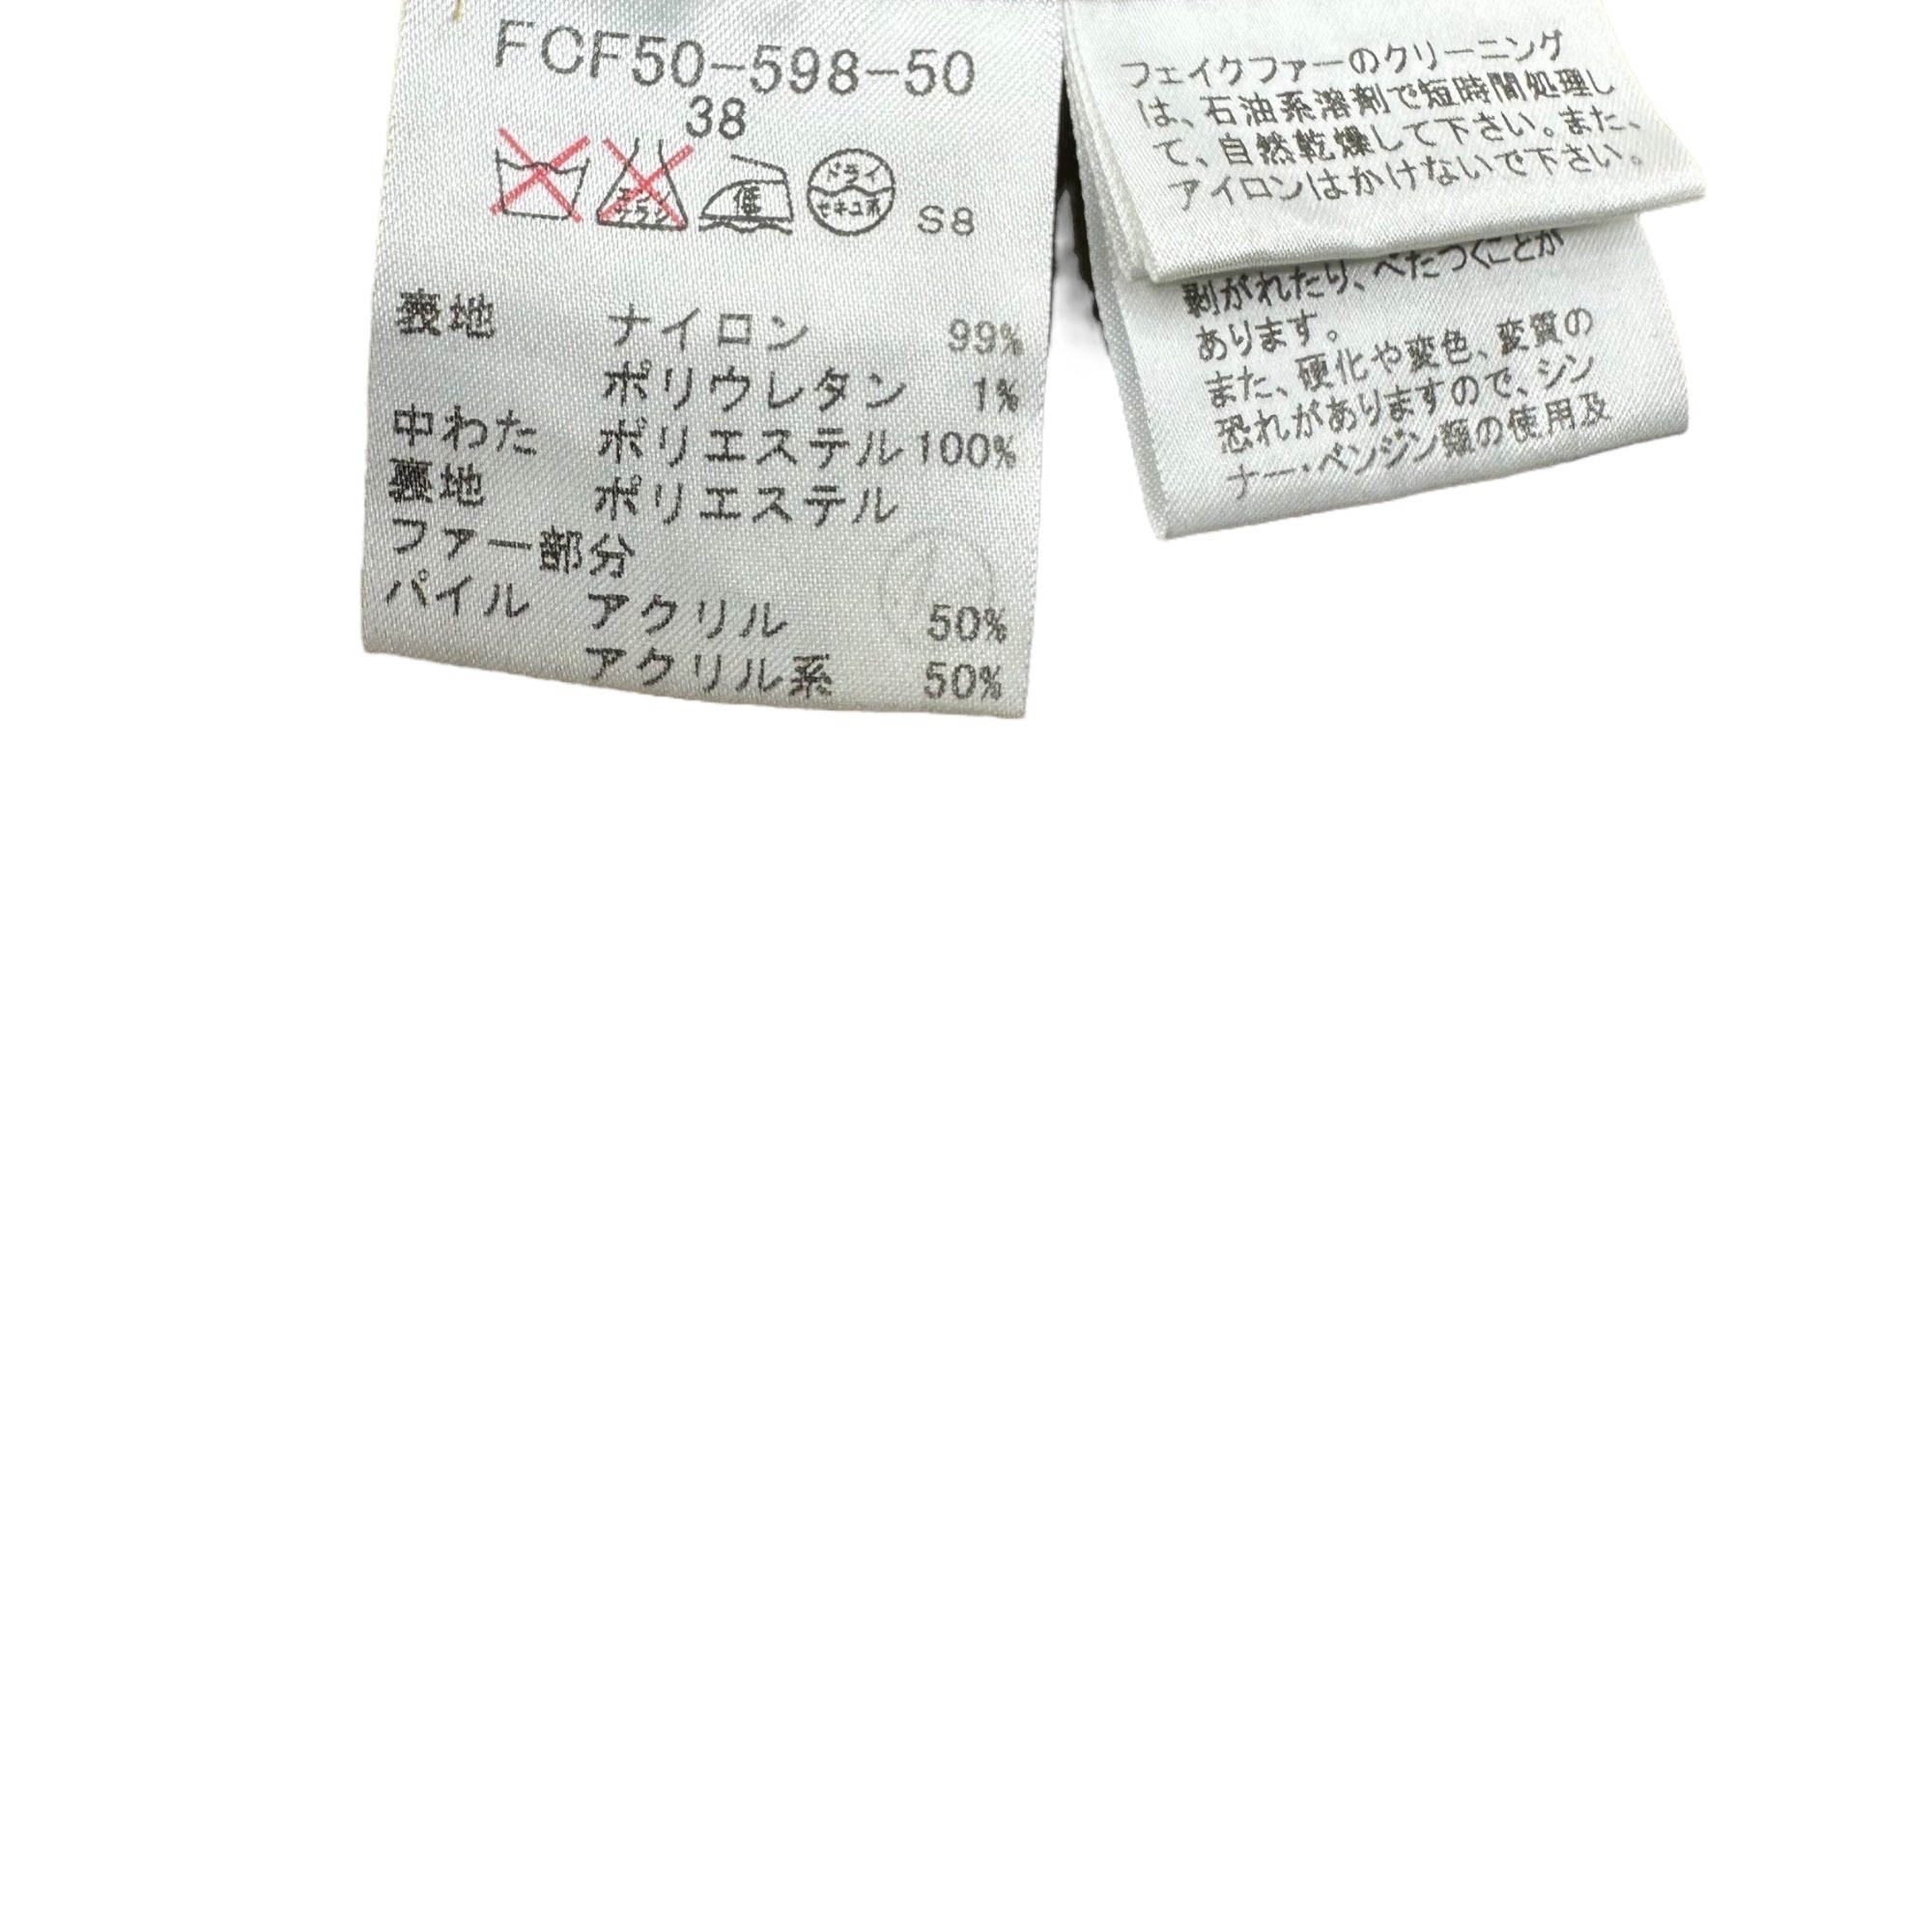 FCF50-598-50
38
エンソ
サラシ
低
ドライ
セキユ系
S8
表地 ナイロン 99%
ポリウレタン 1%
中わた ポリエステル100%
裏地 ポリエステル
ファー部分
パイル アクリル 50%
アクリル系 50%
フェイクファーのクリーニング
は、石油系溶剤で短時間処理し
て、自然乾燥して下さい。また、
アイロンはかけないで下さい。
剥がれたり、べたつくことが
あります。
また、硬化や変色、変質の
恐れがありますので、シン
ナー・ベンジン類の使用及